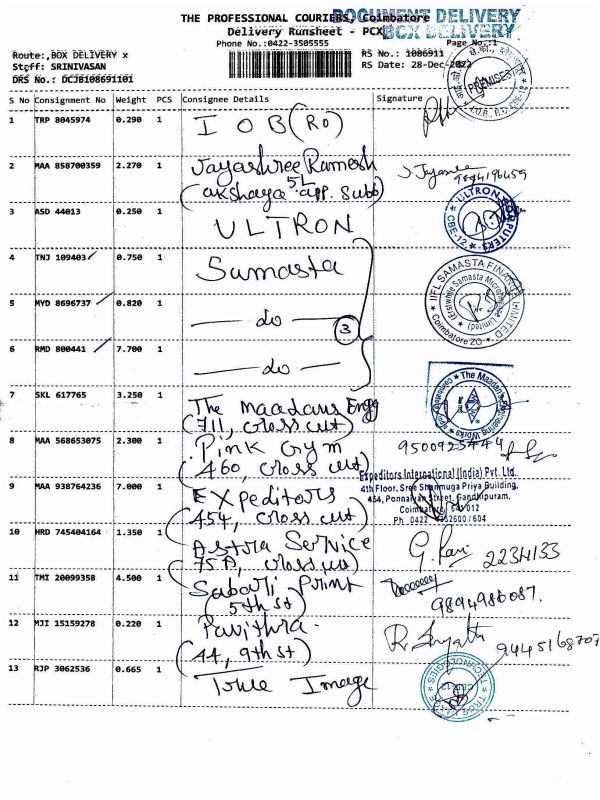 THE PROFESSIONAL COURIERS, Coimbatore
DOCUMENT DELIVERY
BOX DELIVERY
Delivery Runsheet - PCX
Phone No.:0422-3505555
Page No.:1
Route:,BOX DELIVERY x
RS No.: 1086911
Staff: SRINIVASAN
RS Date: 28-Dec-2022
DRS No.: DCJB108691101
S No Consignment No Weight PCS Consignee Details Signature
1 TRP 8045974 0.290 1 I O B (Ro)
PREMISES
2 MAA 858700359 2.270 1 Jayashree Ramesh
(akshaya app. Subb)
3 ASD 44013 0.250 1 ULTRON
ULTRON COMPUTERS
CBE-12
4 TNJ 109403 0.750 1 Samasta
IIFL SAMASTA FINANCE LIMITED
(Erstwhile Samasta Microfinance Limited)
Coimbatore ZO
5 MYD 8696737 0.820 1 do
3
6 RMD 800441 7.700 1 do
7 SKL 617765 3.250 1 The Maadans Engg
(711, cross cut)
8 MAA 568653075 2.300 1 Pink Gym
(460, cross cut)
9500925444
9 MAA 938764236 7.000 1 Expeditors
(454, cross cut)
Expeditors International (India) Pvt. Ltd.
4th Floor, Sree Shanmuga Priya Building,
454, Ponnaiyan Street, Gandhipuram,
Coimbatore 641 012
10 HRD 745404164 1.350 1 Astra Service
G. Ravi 2234133
11 TMI 20099358 4.500 1 Sabari Print
(5th st)
9894986087.
12 MJI 15159278 0.220 1 Pavithra
(44, 9th st)
9445168707
13 RJP 3062536 0.665 1 True Image